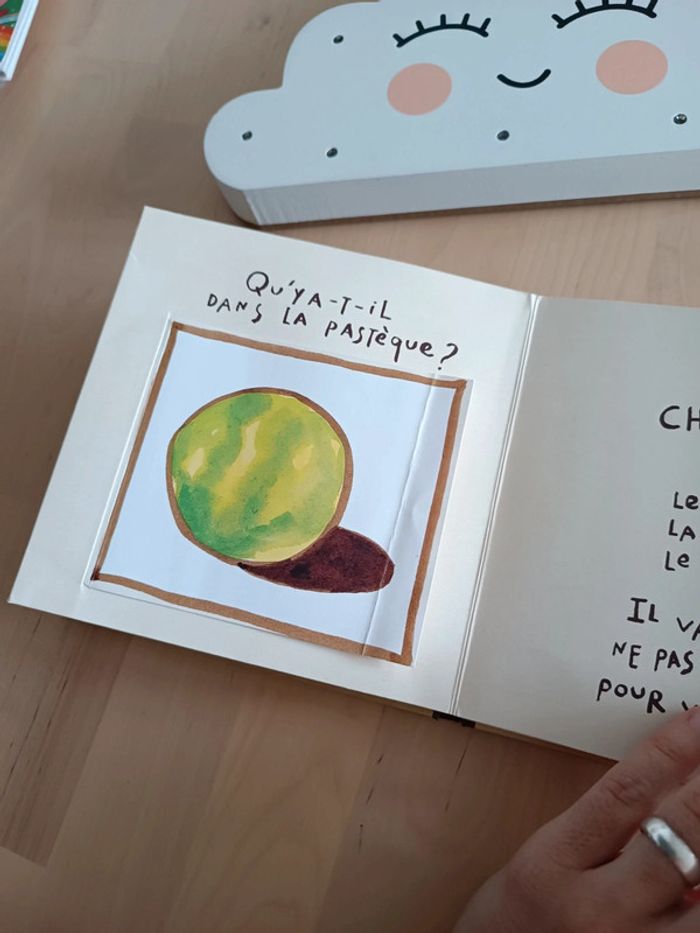 Qu'Y A-T-iL
DANS LA PASTèque?
Le
LA
Le
IL
NE PAS
POUR